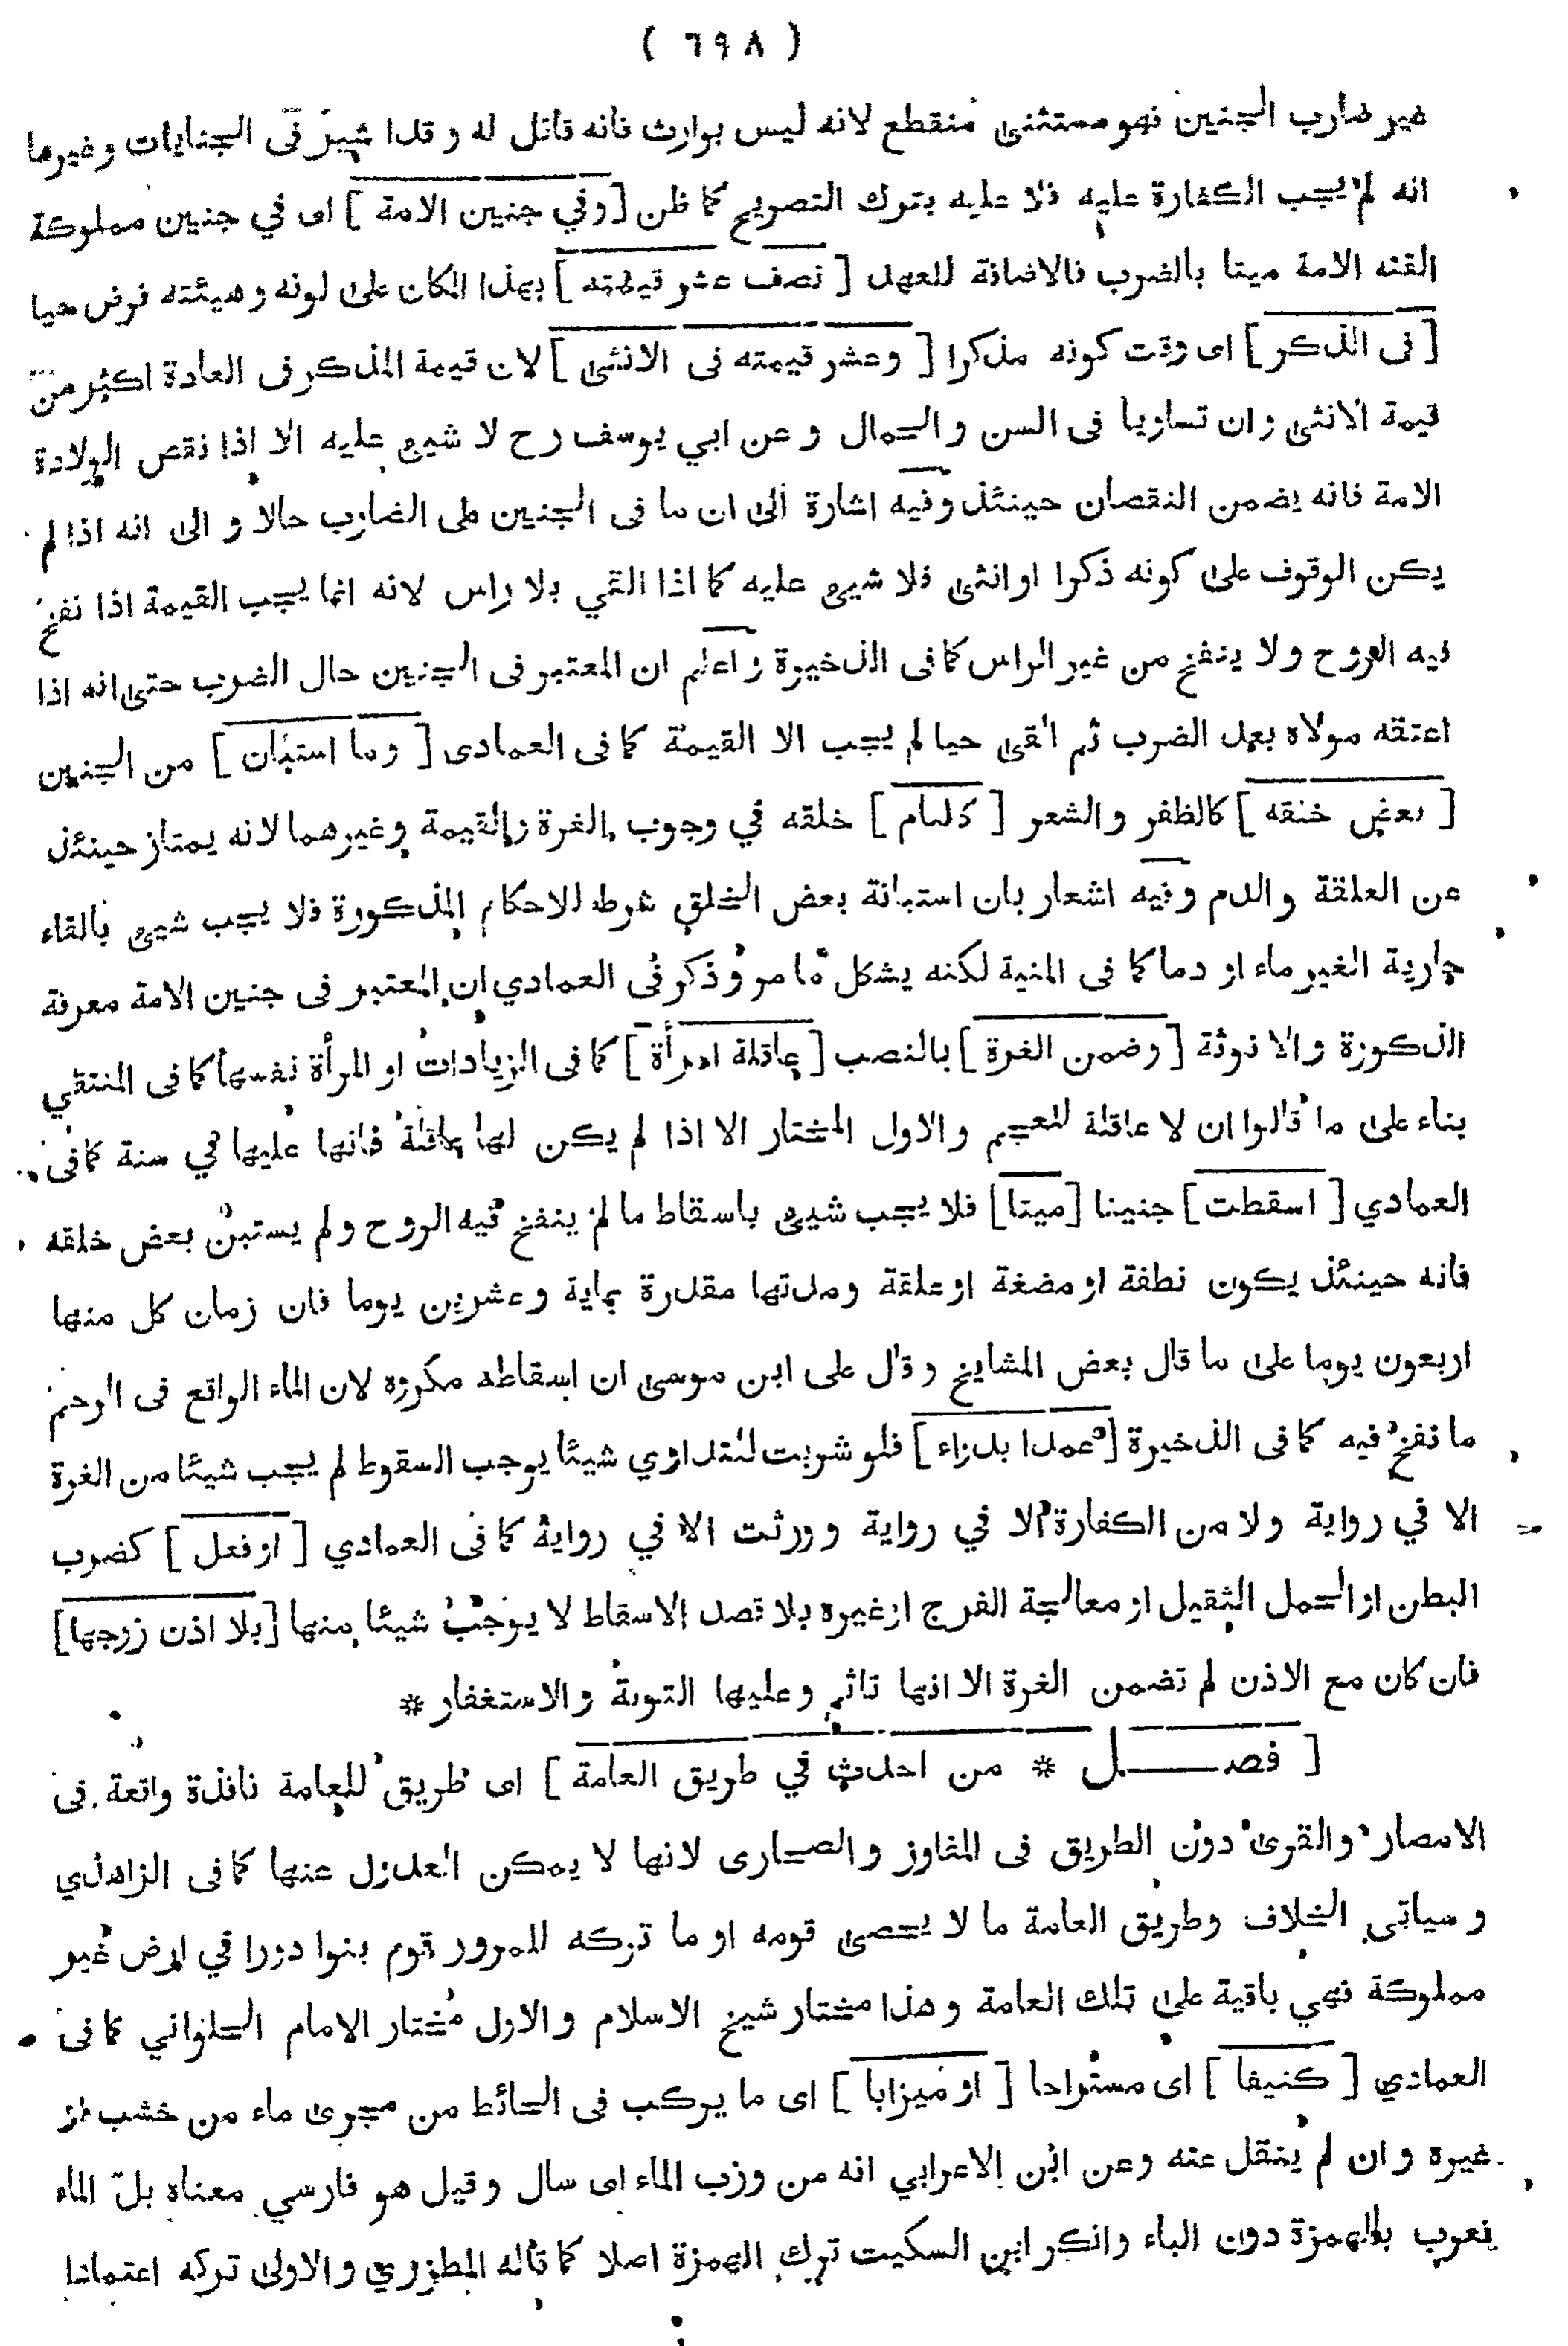 ( ٦٩٨ )
غير ضارب الجنين فهو مستثنى منقطع لانه ليس بوارث فانه قاتل له و قدا شير فى الجنايات وغيرها
انه لم يجب الكفارة عليه فلا عليه بترك التصريح كما ظن [ وفي جنين الامة ] اى في جنين مملوكة
القته الامة ميتا بالضرب فالاضافة للعهد [ نصف عشر قيمته ] بهذا المكان على لونه و هيئته فرض حيا
[ فى الذكر ] اى وقت كونه مذكرا [ وعشر قيمته فى الانثى ] لان قيمة المذكر فى العادة اكثر من
قيمة الانثى وان تساويا فى السن و الجمال و عن ابي يوسف رح لا شيء عليه الا اذا نقص الولادة
الامة فانه يضمن النقصان حينئذ وفيه اشارة الى ان ما فى الجنين على الضارب حالا و الى انه اذا لم
يكن الوقوف على كونه ذكرا او انثى فلا شيء عليه كما اذا القي بلا راس لانه انما يجب القيمة اذا نفخ
فيه الروح ولا ينفخ من غير الراس كما فى الذخيرة واعلم ان المعتبر فى الجنين حال الضرب حتى انه اذا
اعتقه مولاه بعد الضرب ثم القى حيا لم يجب الا القيمة كما فى العمادى [ وما استبان ] من الجنين
[ بعض خلقه ] كالظفر والشعر [ كتام ] خلقه في وجوب الغرة والقيمة وغيرهما لانه يمتاز حينئذ
عن العلقة والدم وفيه اشعار بان استبانة بعض الخلق شرط للاحكام المذكورة فلا يجب شيء بالقاء
جارية الغير ماء او دما كما فى المنية لكنه يشكل ما مر وذكر فى العمادي ان المعتبر فى جنين الامة معرفة
الذكورة والا نوثة [ وضمن الغرة ] بالنصب [ عاقلة امرأة ] كما فى الزيادات او المرأة نفسها كما فى المنتقي
بناء على ما قالوا ان لا عاقلة للعجم والاول المختار الا اذا لم يكن لها عاقلة فانها عليها في سنة كما فى
العمادي [ اسقطت ] جنينا [ ميتا ] فلا يجب شيء باسقاط ما لم ينفخ فيه الروح ولم يستبن بعض خلقه
فانه حينئذ يكون نطفة او مضغة او علقة ومدتها مقدرة بماية وعشرين يوما فان زمان كل منها
اربعون يوما على ما قال بعض المشايخ وقال على ابن موسى ان اسقاطه مكروه لان الماء الواقع فى الرحم
ما نفخ فيه كما فى الذخيرة [ عمدا بدواء ] فلو شربت للتداوي شيئا يوجب السقوط لم يجب شيئا من الغرة
الا في رواية ولا من الكفارة الا في رواية وورثت الا في رواية كما فى العمادي [ او فعل ] كضرب
البطن او الحمل الثقيل او معالجة الفرج او غيره بلا قصد الاسقاط لا يوجب شيئا منها [ بلا اذن زوجها ]
فان كان مع الاذن لم تضمن الغرة الا انها تاثم وعليها التوبة والاستغفار *
[ فصـــل * من احدث في طريق العامة ] اى طريق للعامة نافذة واقعة فى
الامصار والقرى دون الطريق فى المفاوز والصحارى لانها لا يمكن العدول عنها كما فى الزاهدي
وسياتي الخلاف وطريق العامة ما لا يحصى قومه او ما تركه للمرور قوم بنوا دورا في ارض غير
مملوكة فهي باقية على تلك العامة وهذا مختار شيخ الاسلام والاول مختار الامام الحلواني كما فى
العمادي [ كنيفا ] اى مستراحا [ او ميزابا ] اى ما يركب فى الحائط من مجرى ماء من خشب او
غيره وان لم ينقل عنه وعن ابن الاعرابي انه من وزب الماء اى سال وقيل هو فارسي معناه بلّ الماء
نعرب بالهمزة دون الباء وانكر ابن السكيت ترك الهمزة اصلا كما قاله المطرزي والاولى تركه اعتمادا